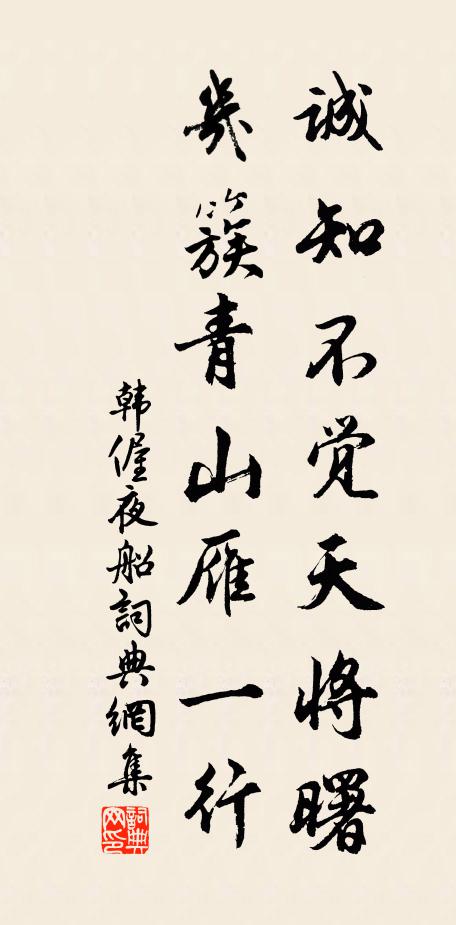 誠知不觉天将曙
幾簇青山雁一行
韓偓夜船詞典網集
詞典网印